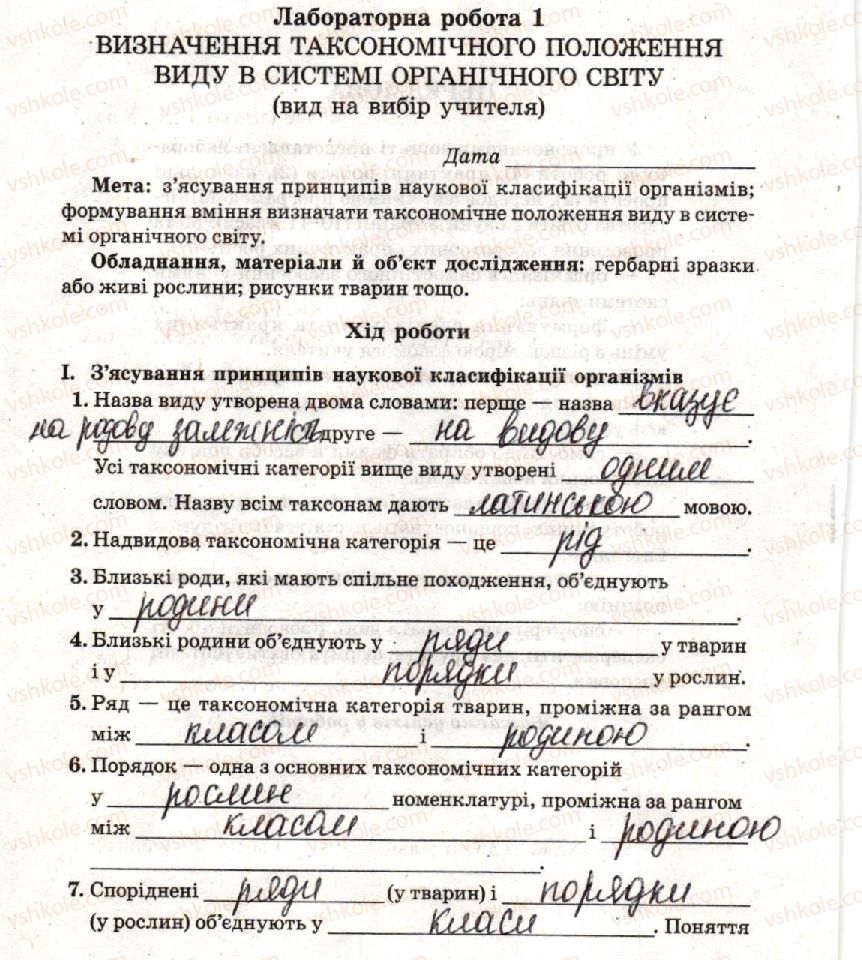 Лабораторна робота 1
ВИЗНАЧЕННЯ ТАКСОНОМІЧНОГО ПОЛОЖЕННЯ
ВИДУ В СИСТЕМІ ОРГАНІЧНОГО СВІТУ
(вид на вибір учителя)
Дата
Мета: з’ясування принципів наукової класифікації організмів;
формування вміння визначати таксономічне положення виду в систе-
мі органічного світу.
Обладнання, матеріали й об’єкт дослідження: гербарні зразки
або живі рослини; рисунки тварин тощо.
Хід роботи
І. З’ясування принципів наукової класифікації організмів
1. Назва виду утворена двома словами: перше — назва вказує
на родову залежність друге — на видову.
Усі таксономічні категорії вище виду утворені одним
словом. Назву всім таксонам дають латинською мовою.
2. Надвидова таксономічна категорія — це рід.
3. Близькі роди, які мають спільне походження, об’єднують
у родини.
4. Близькі родини об’єднують у ряди у тварин
і у порядки у рослин.
5. Ряд — це таксономічна категорія тварин, проміжна за рангом
між класом і родиною.
6. Порядок — одна з основних таксономічних категорій
у рослин номенклатурі, проміжна за рангом
між класом і родиною
.
7. Споріднені ряди (у тварин) і порядки
(у рослин) об’єднують у класи. Поняття